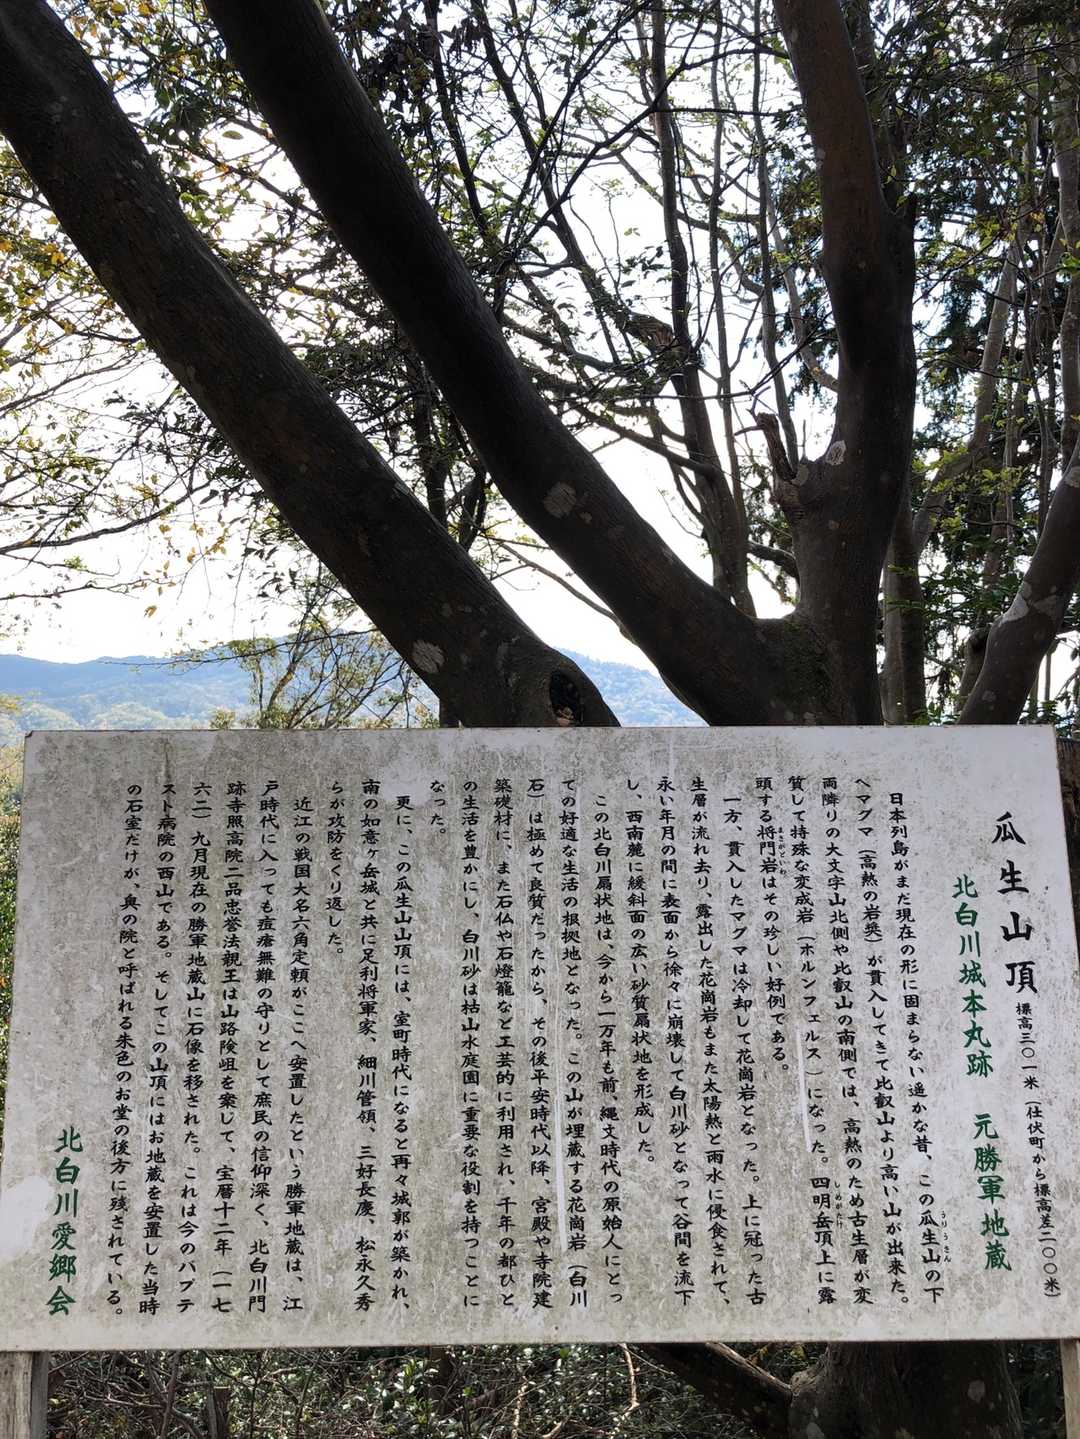 瓜生山頂 標高三〇一米（仕伏町から標高差二〇〇米）
北白川城本丸跡 元勝軍地蔵
日本列島がまだ現在の形に固まらない遥かな昔、この瓜生山の下
うりうさん
へマグマ（高熱の岩奬）が貫入してきて比叡山より高い山が出来た。
両隣りの大文字山北側や比叡山の南側では、高熱のため古生層が変
質して特殊な変成岩（ホルンフェルス）になった。四明岳頂上に露
しめがたけ
頭する将門岩はその珍しい好例である。
まさがどいわ
一方、貫入したマグマは冷却して花崗岩となった。上に冠った古
生層が流れ去り、露出した花崗岩もまた太陽熱と雨水に侵食されて、
永い年月の間に表面から徐々に崩壊して白川砂となって谷間を流下
し、西南麓に緩斜面の広い砂質扇状地を形成した。
この北白川扇状地は、今から一万年も前、縄文時代の原始人にとっ
ての好適な生活の根拠地となった。この山が埋蔵する花崗岩（白川
石）は極めて良質だったから、その後平安時代以降、宮殿や寺院建
築礎材に、また石仏や石燈籠など工芸的に利用され、千年の都ひと
の生活を豊かにし、白川砂は枯山水庭園に重要な役割を持つことに
なった。
更に、この瓜生山山頂には、室町時代になると再々城郭が築かれ、
南の如意ヶ岳城と共に足利将軍家、細川管領、三好長慶、松永久秀
らが攻防をくり返した。
近江の戦国大名六角定頼がここへ安置したという勝軍地蔵は、江
戸時代に入っても痘瘡無難の守りとして庶民の信仰深く、北白川門
跡寺照高院二品忠誉法親王は山路険岨を案じて、宝暦十二年（一七
六二）九月現在の勝軍地蔵山に石像を移された。これは今のバプテ
スト病院の西山である。そしてこの山頂にはお地蔵を安置した当時
の石室だけが、奥の院と呼ばれる朱色のお堂の後方に残されている。
北白川愛郷会